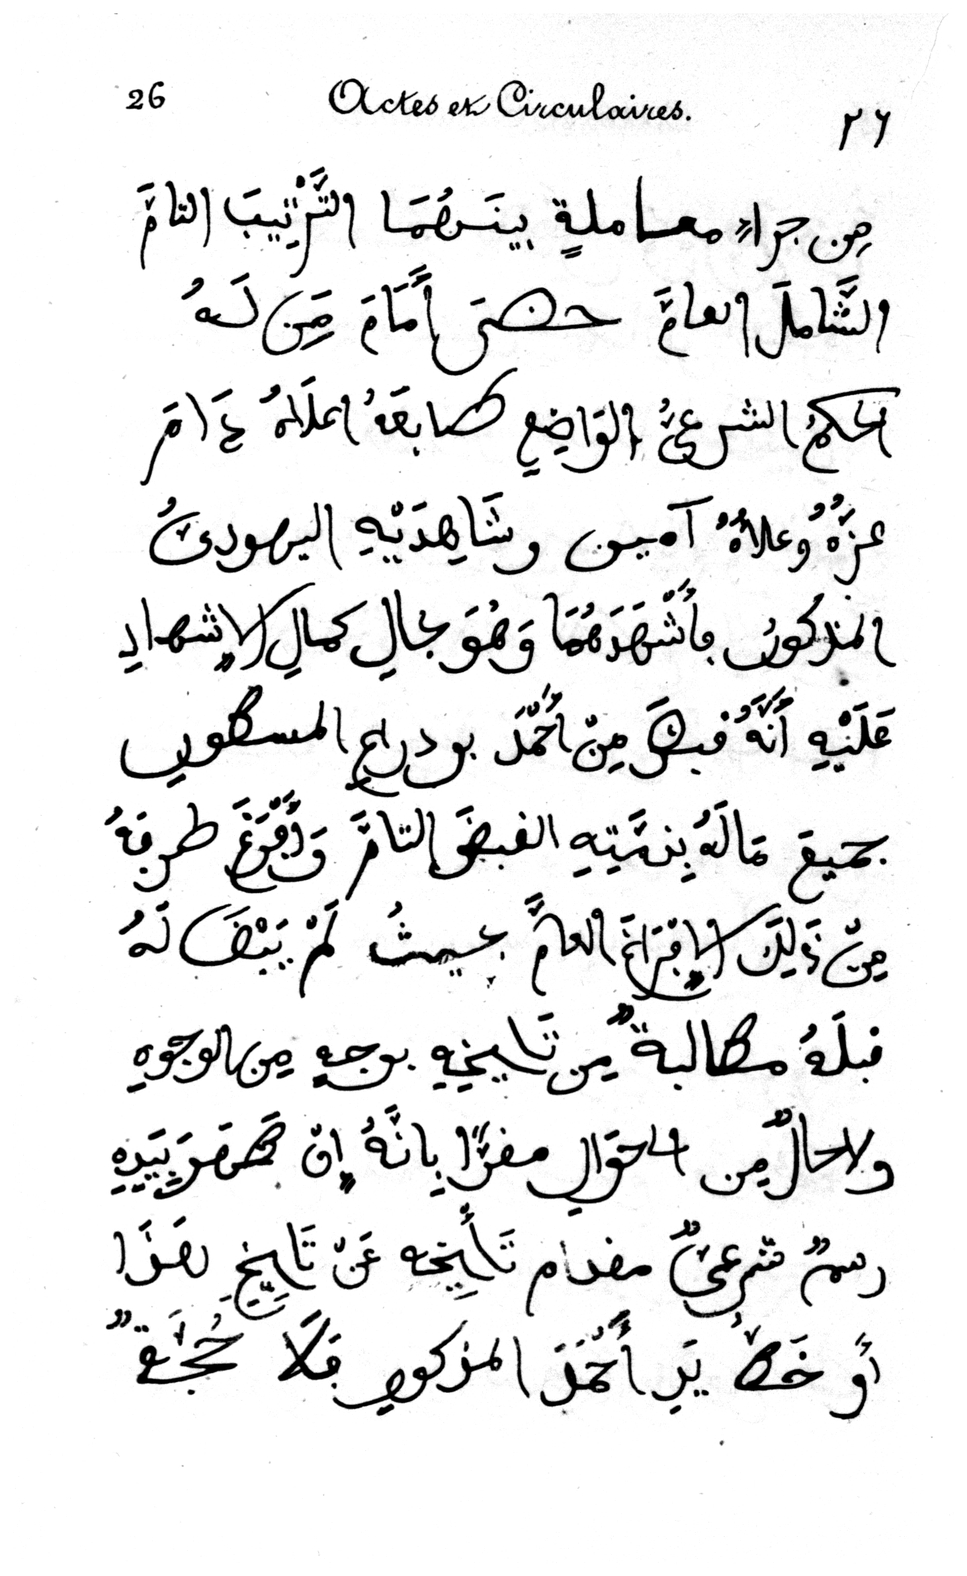 26 Actes et Circulaires. ٢٦
مِن جَرَاءِ معاملةٍ بينَهُمَا التَّرْتِيبَ التامَّ
الشَّاملَ العامَّ حضَرَ أَمَامَ مَن لَهُ
الحكمُ الشرعيُّ الوَاضِعِ طابعَهُ اعلَاهُ دَامَ
عزُّهُ وعلاؤُهُ آمين وشَاهِدَيْهِ اليهوديُّ
المذكورُ فأَشْهَدَهُمَا وَهُوَ بحالِ كمالِ الإشهادِ
عَلَيْهِ أَنَّهُ قبضَ مِنْ أَحْمَدَ بو دراعٍ المسطورِ
جميعَ مَالَهُ بِذمَّتِهِ القبضَ التامَّ وَأَبْرَأَ طرفَهُ
مِنْ ذَلِكَ الإِبْرَاءَ العامَّ بحيثُ لَمْ يَبْقَ لَهُ
قبلَهُ مطالبةٌ مِن تَاريخِهِ بوجهٍ مِن الوجوهِ
ولا حالٌ مِن الاحوَالِ مقرًّا بِانَّهُ إِنْ ظَهَرَ بِيَدِهِ
رسمٌ شرعيٌّ مقدام تَأْرِيخه عَنْ تَارِيخِ هَذَا
أَو خَطُّ يَدِ أَحْمَدَ المذكورِ فَلَا حُجَّةٌ